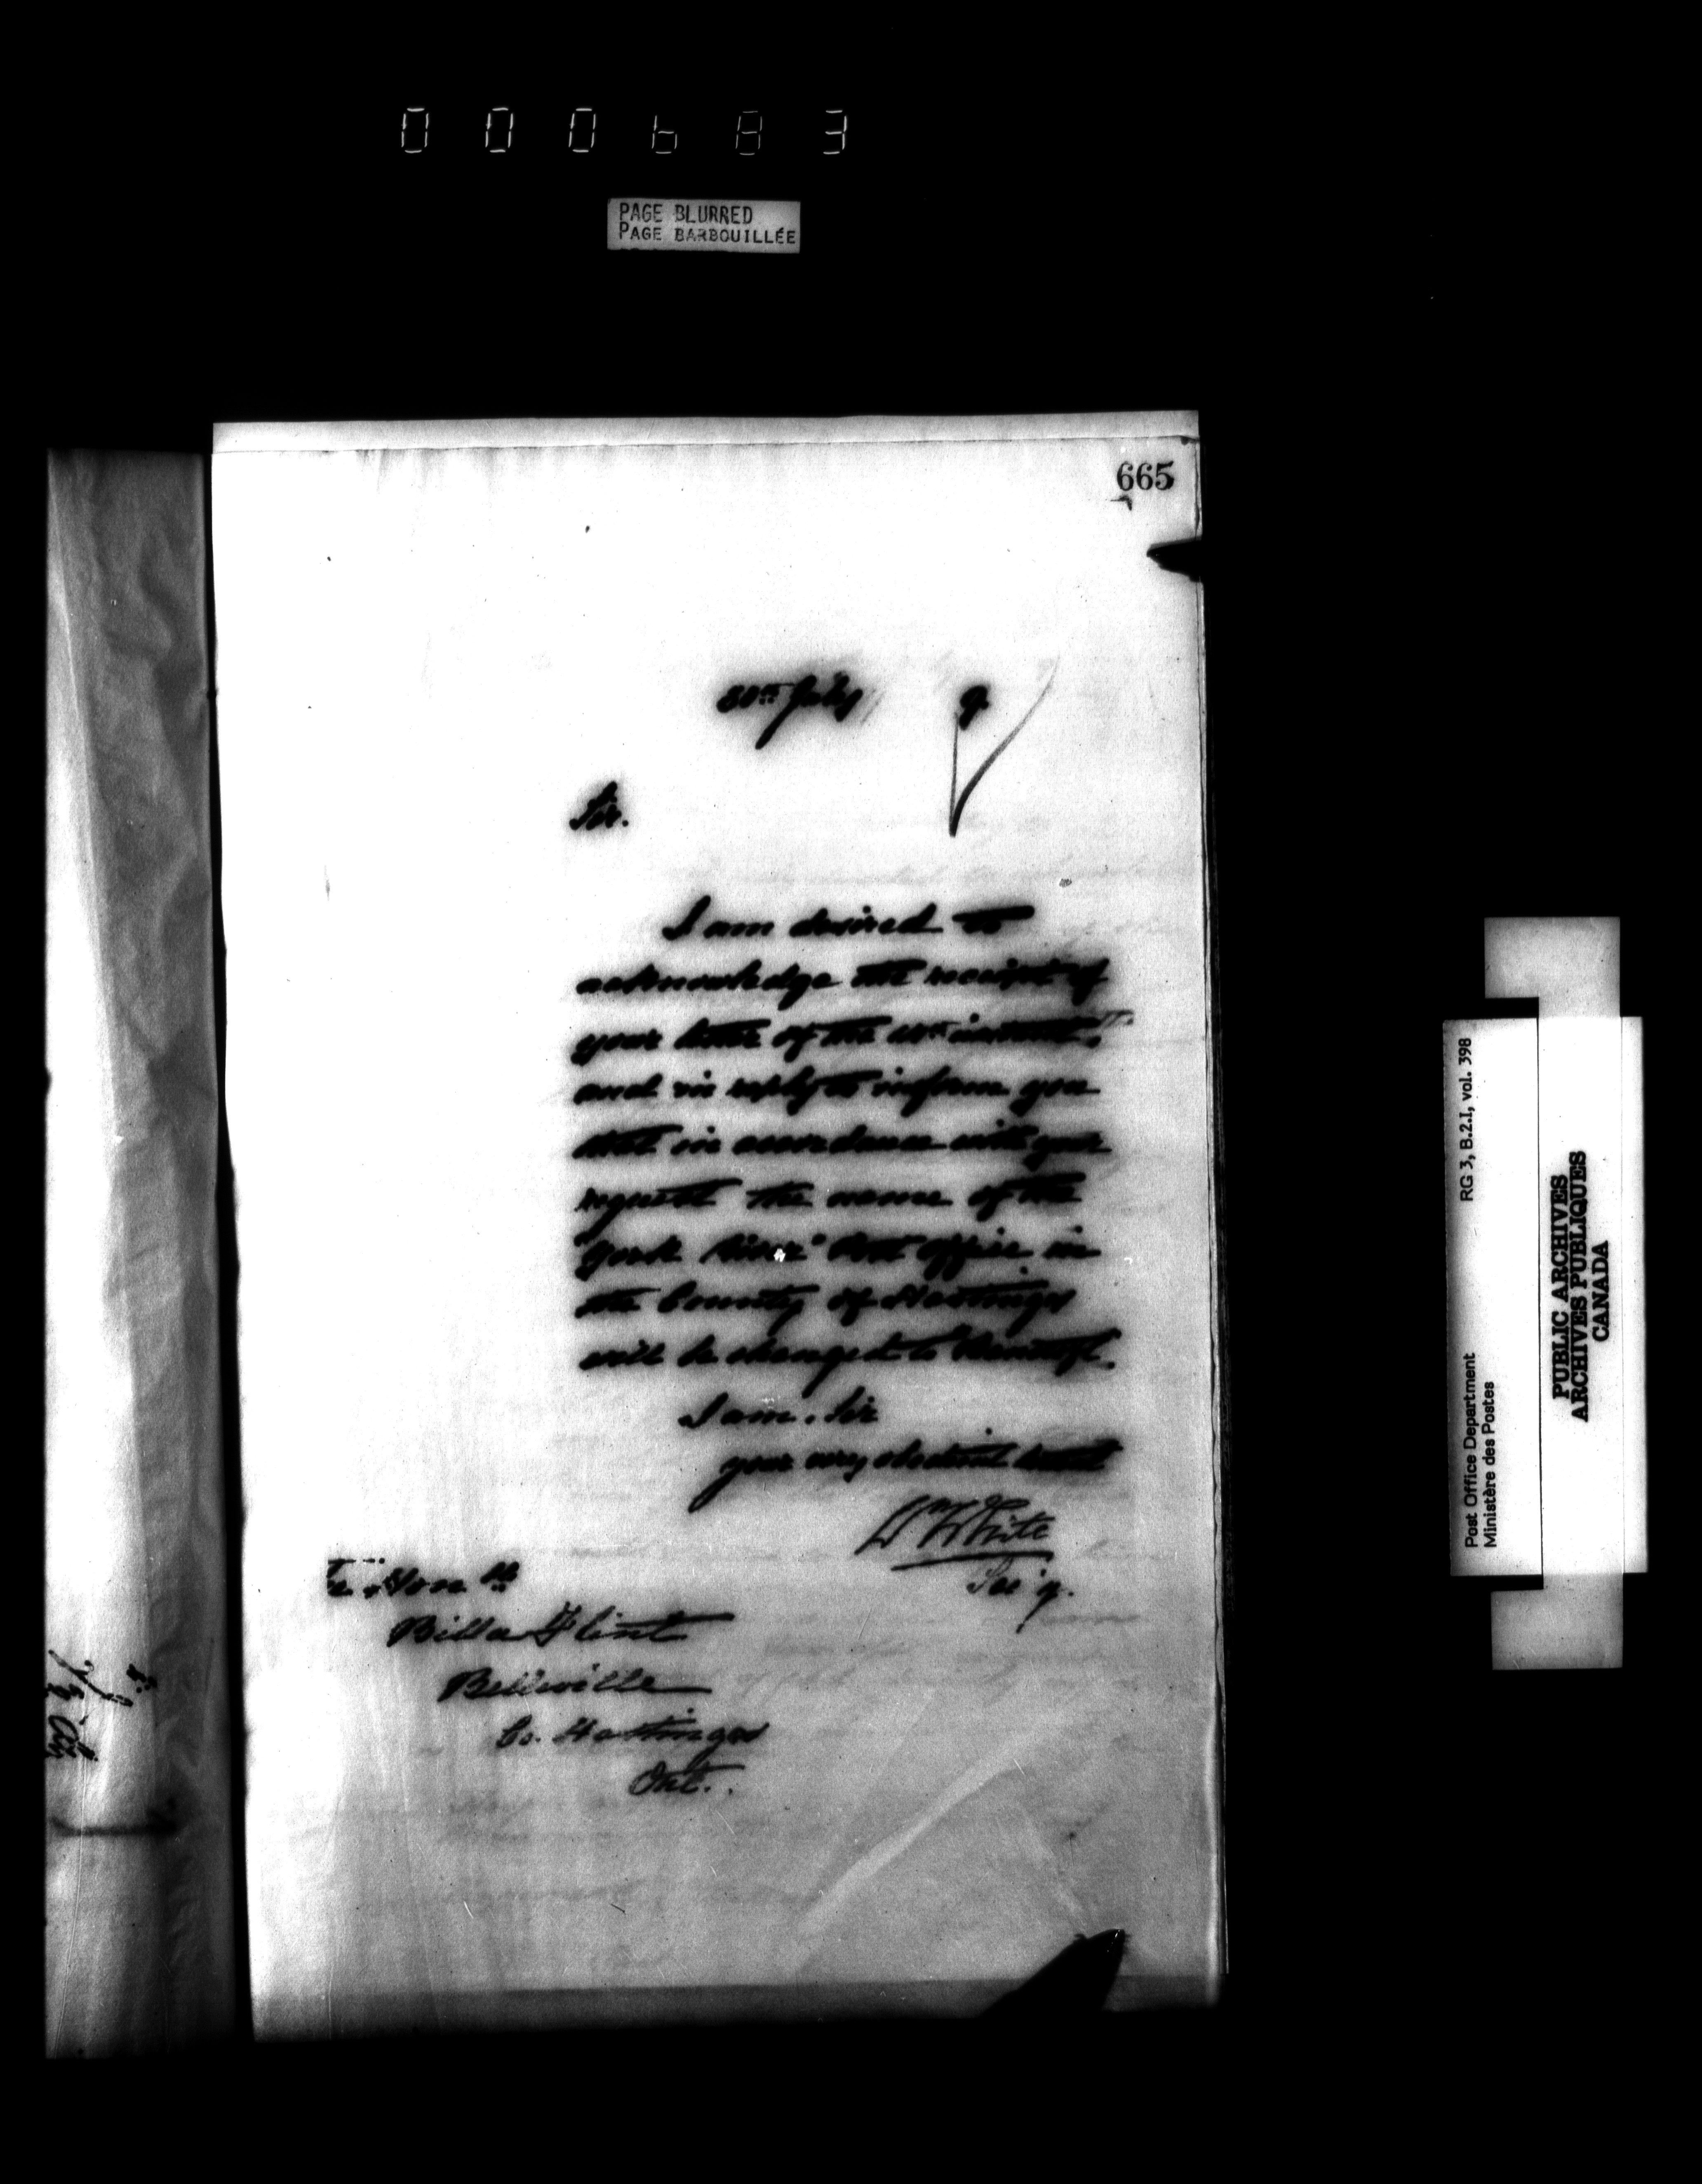 000683
PAGE BLURRED
PAGE BARBOUILLÉE
665
30th July 9
Sir.
I am desired to
acknowledge the receipt of
your letter of the instant,
and in reply to inform you
that in accordance with your
request the name of the
"York River" Post office in
the County of Hastings
will be changed to Bancroft.
I am, Sir
your very obedient servant
Wm White
Sec'y.
The Honble
Billa Flint
Belleville
Co. Hastings
Ont.
Post Office Department RG 3, B.2.I, vol. 398
Ministère des Postes
PUBLIC ARCHIVES
ARCHIVES PUBLIQUES
CANADA